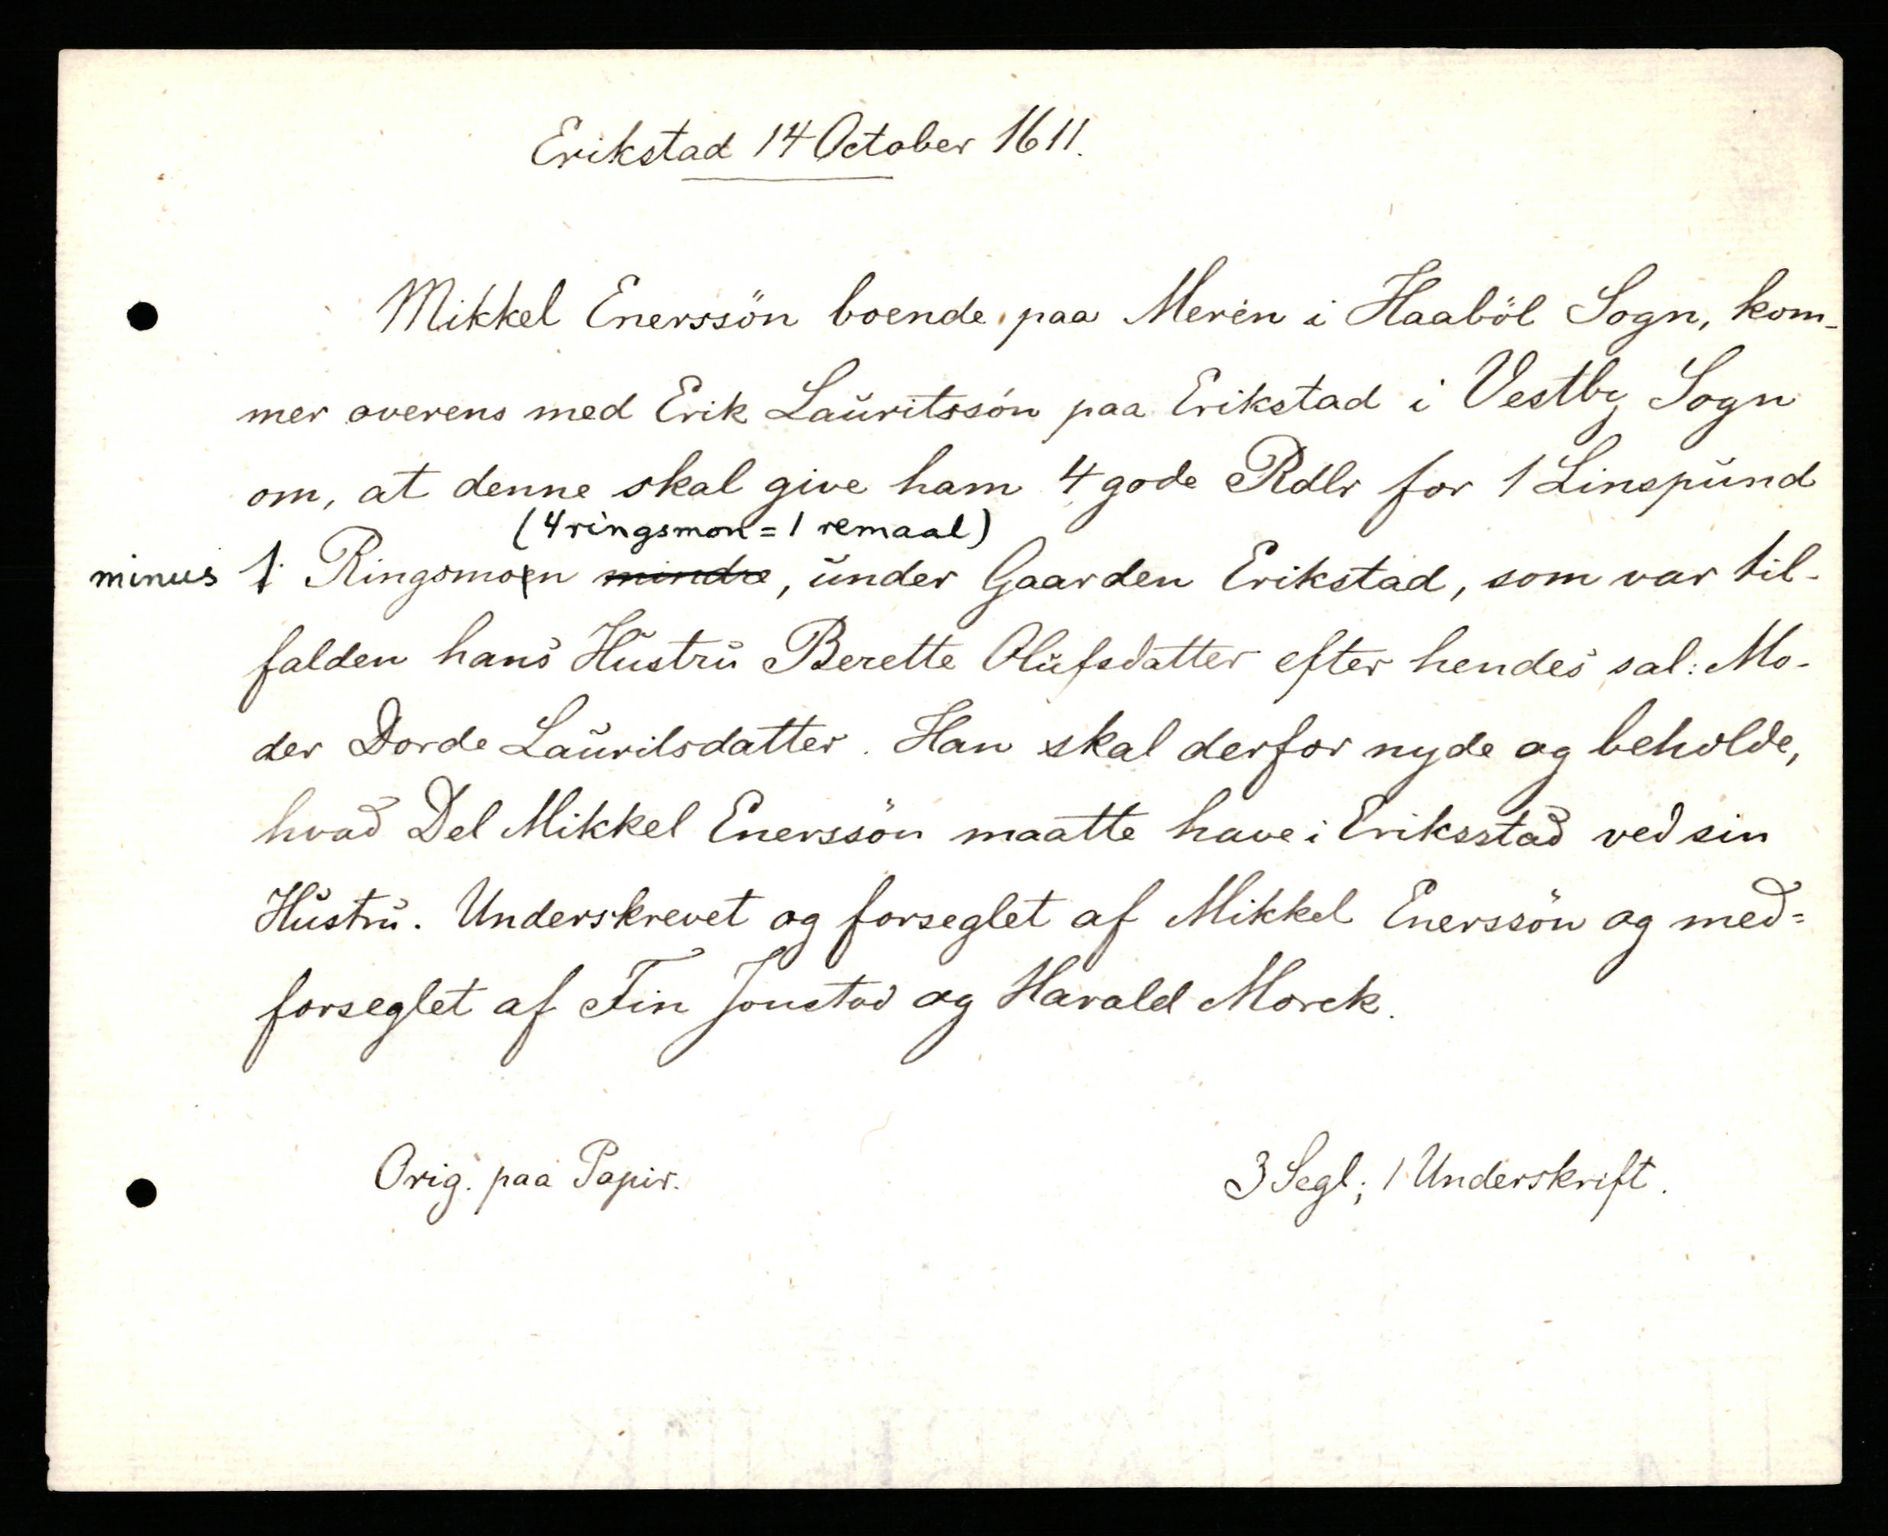 Erikstad 14 October 1611.
Mikkel Enerssön boende paa Merén i Haaböl Sogn, kom-
mer overens med Erik Lauritssön paa Erikstad i Vestby Sogn
om, at denne skal give ham 4 gode Rdlr for 1 Linspund
(4 ringsmon = 1 remaal)
minus 1 Ringsmoen mindre, under Gaarden Erikstad, som var til-
falden hans Hustru Berette Olufsdatter efter hendes sal: Mo-
der Dorde Lauritsdatter. Han skal derfor nyde og beholde,
hvad Del Mikkel Enerssön maatte have i Eriksstad ved sin
Hustru. Underskrevet og forseglet af Mikkel Enerssön og med=
forseglet af Fin Jonstad og Harald Morck.
Orig. paa Papir.
3 Segl; 1 Underskrift.